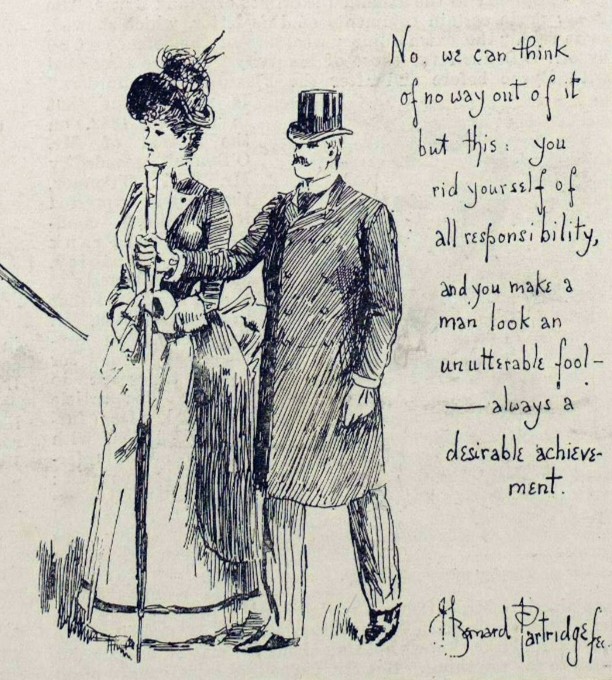 No, we can think
of no way out of it
but this: you
rid yourself of
all responsibility,
and you make a
man look an
unutterable fool-
— always a
desirable achieve-
ment.
J Bernard Partridge fec.